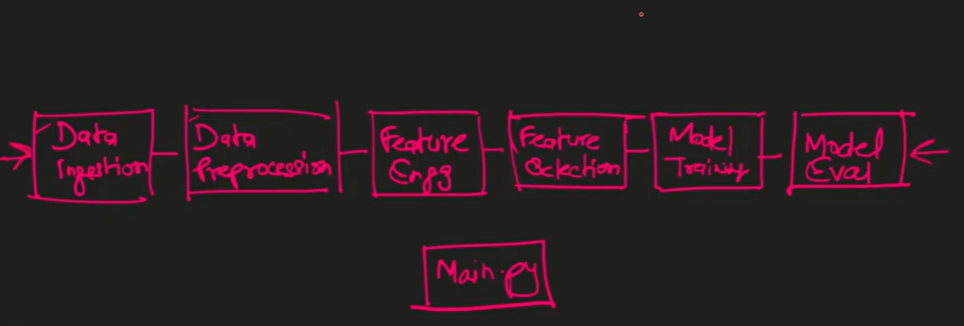 Data
Ingestion
Data
Preprocession
Feature
Engg
Feature
Selection
Model
Training
Model
Eval
Main.py